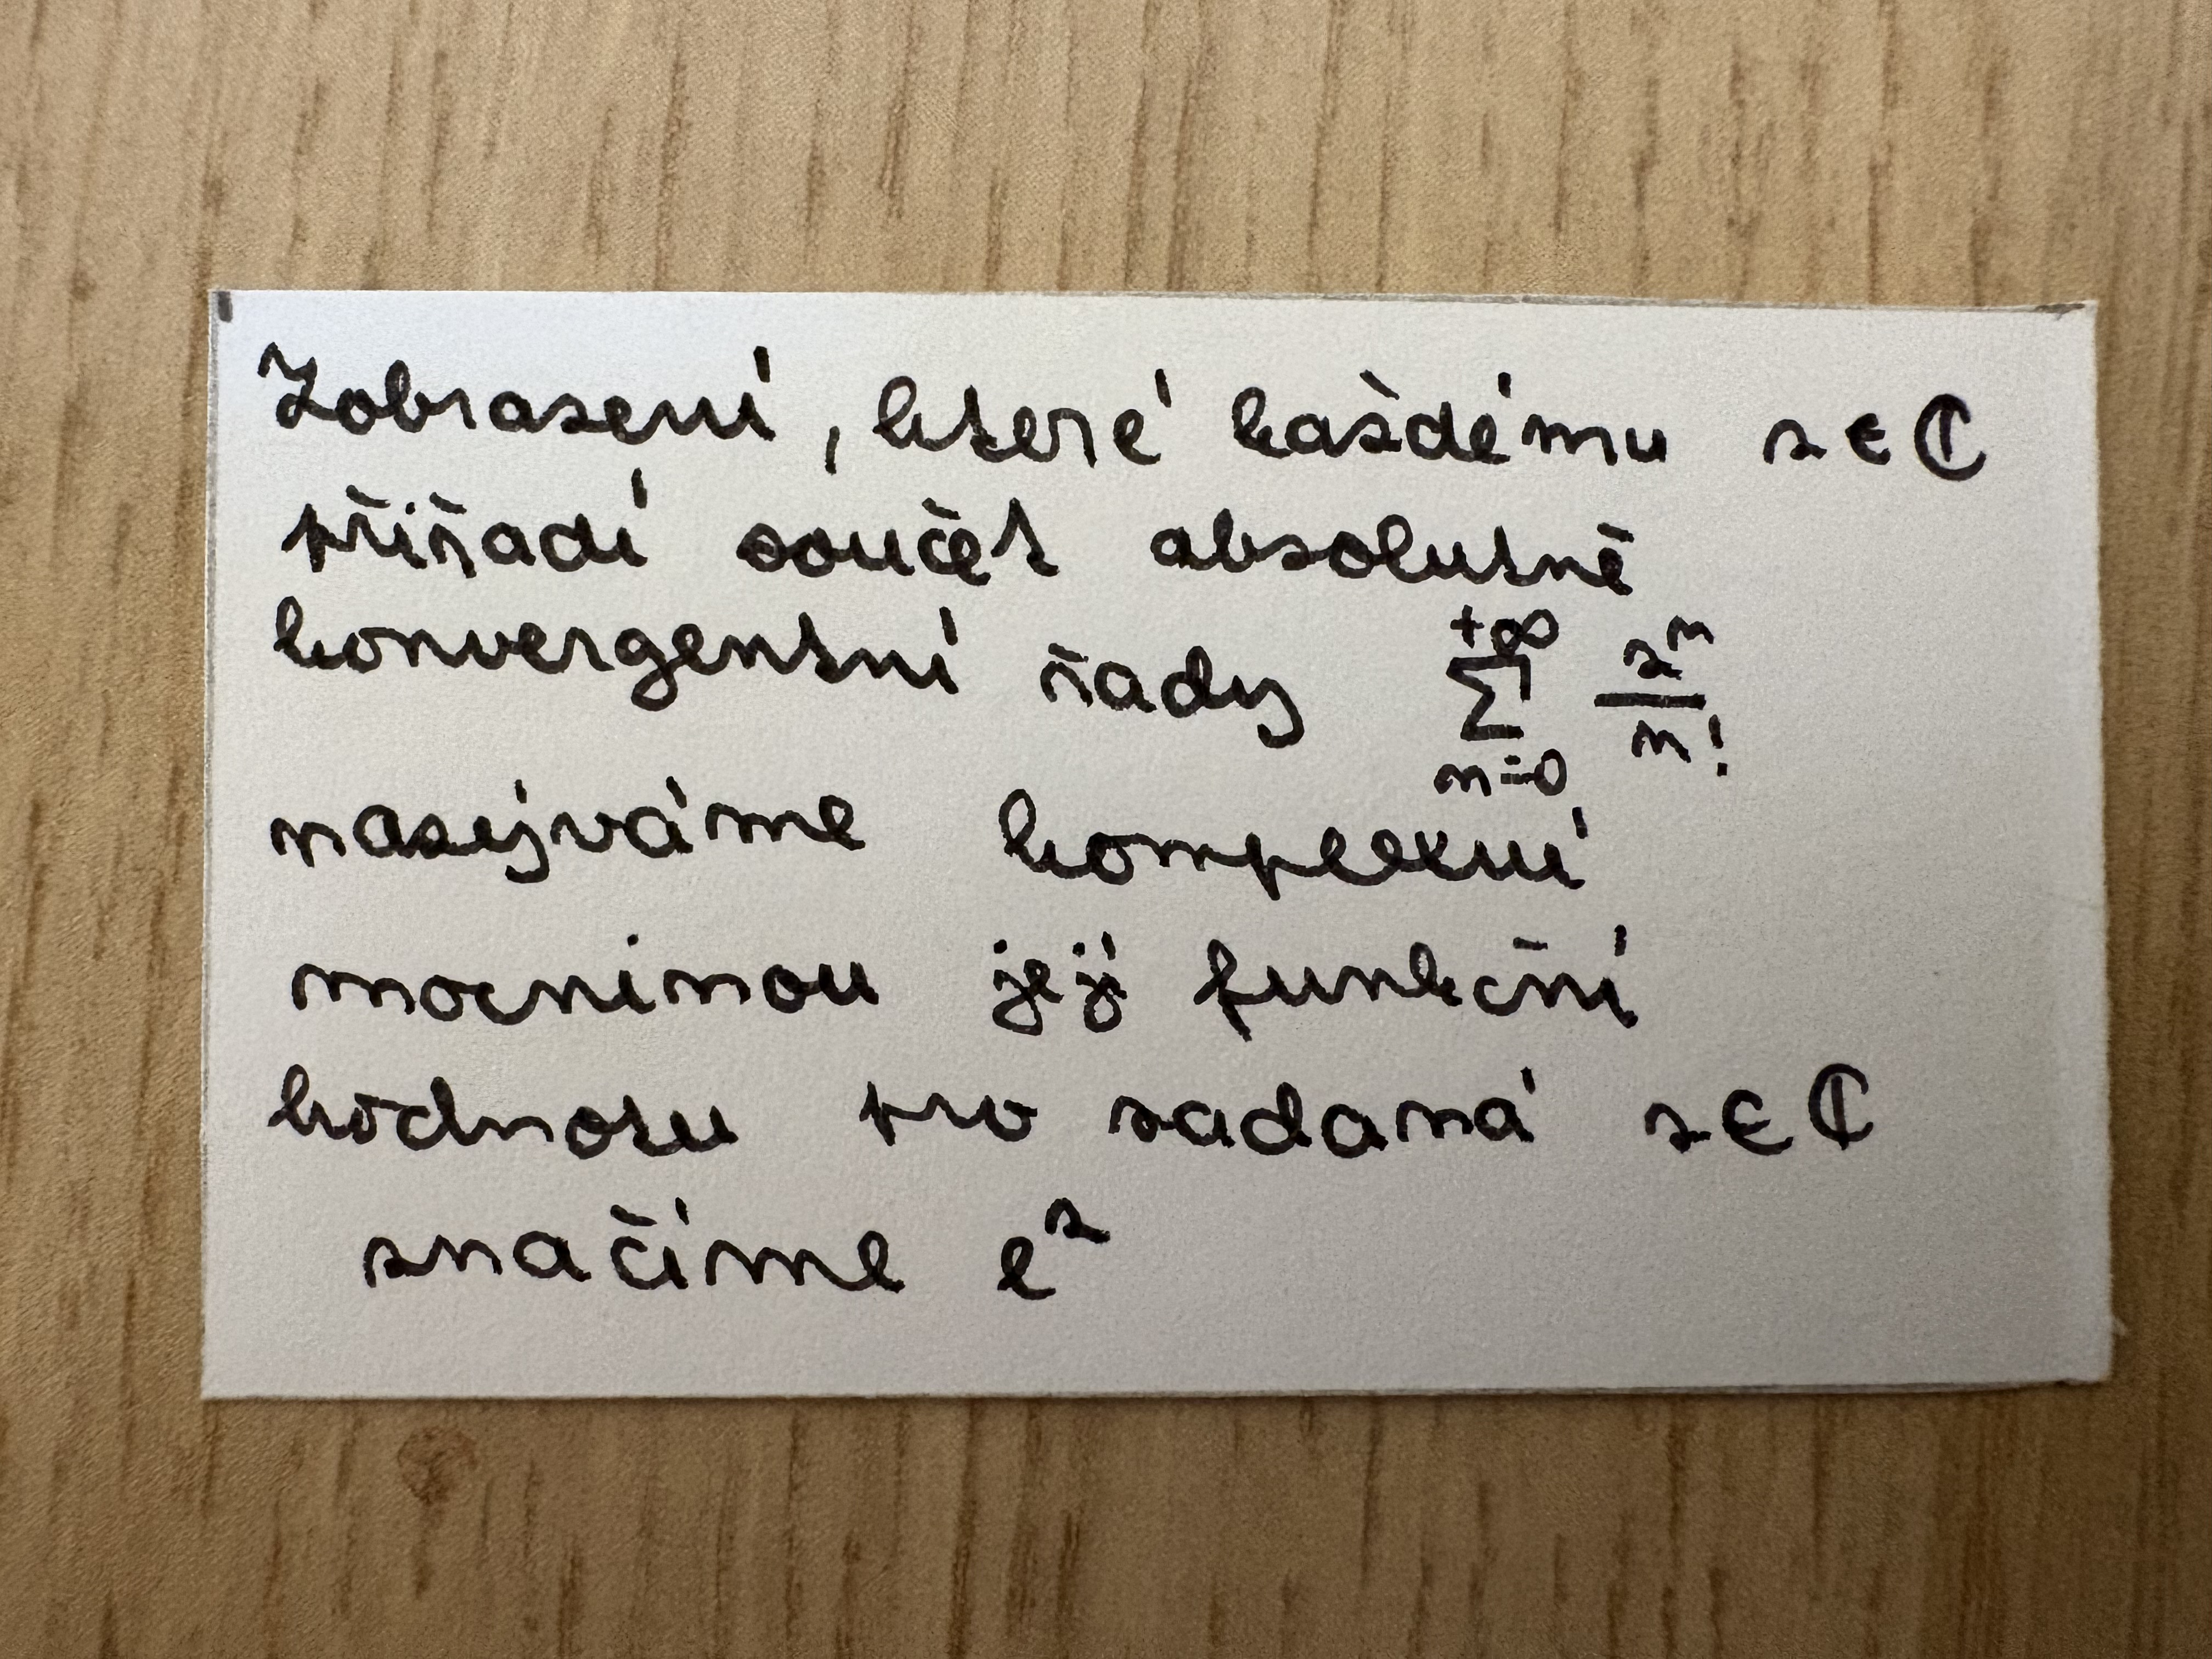 Zobrazení, které každému z∈ℂ
přiřadí součet absolutně
konvergentní řady $\sum_{n=0}^{+\infty} \frac{z^n}{n!}$
nazýváme komplexní
mocninou její funkční
hodnotu pro zadaná z∈ℂ
značíme $e^z$